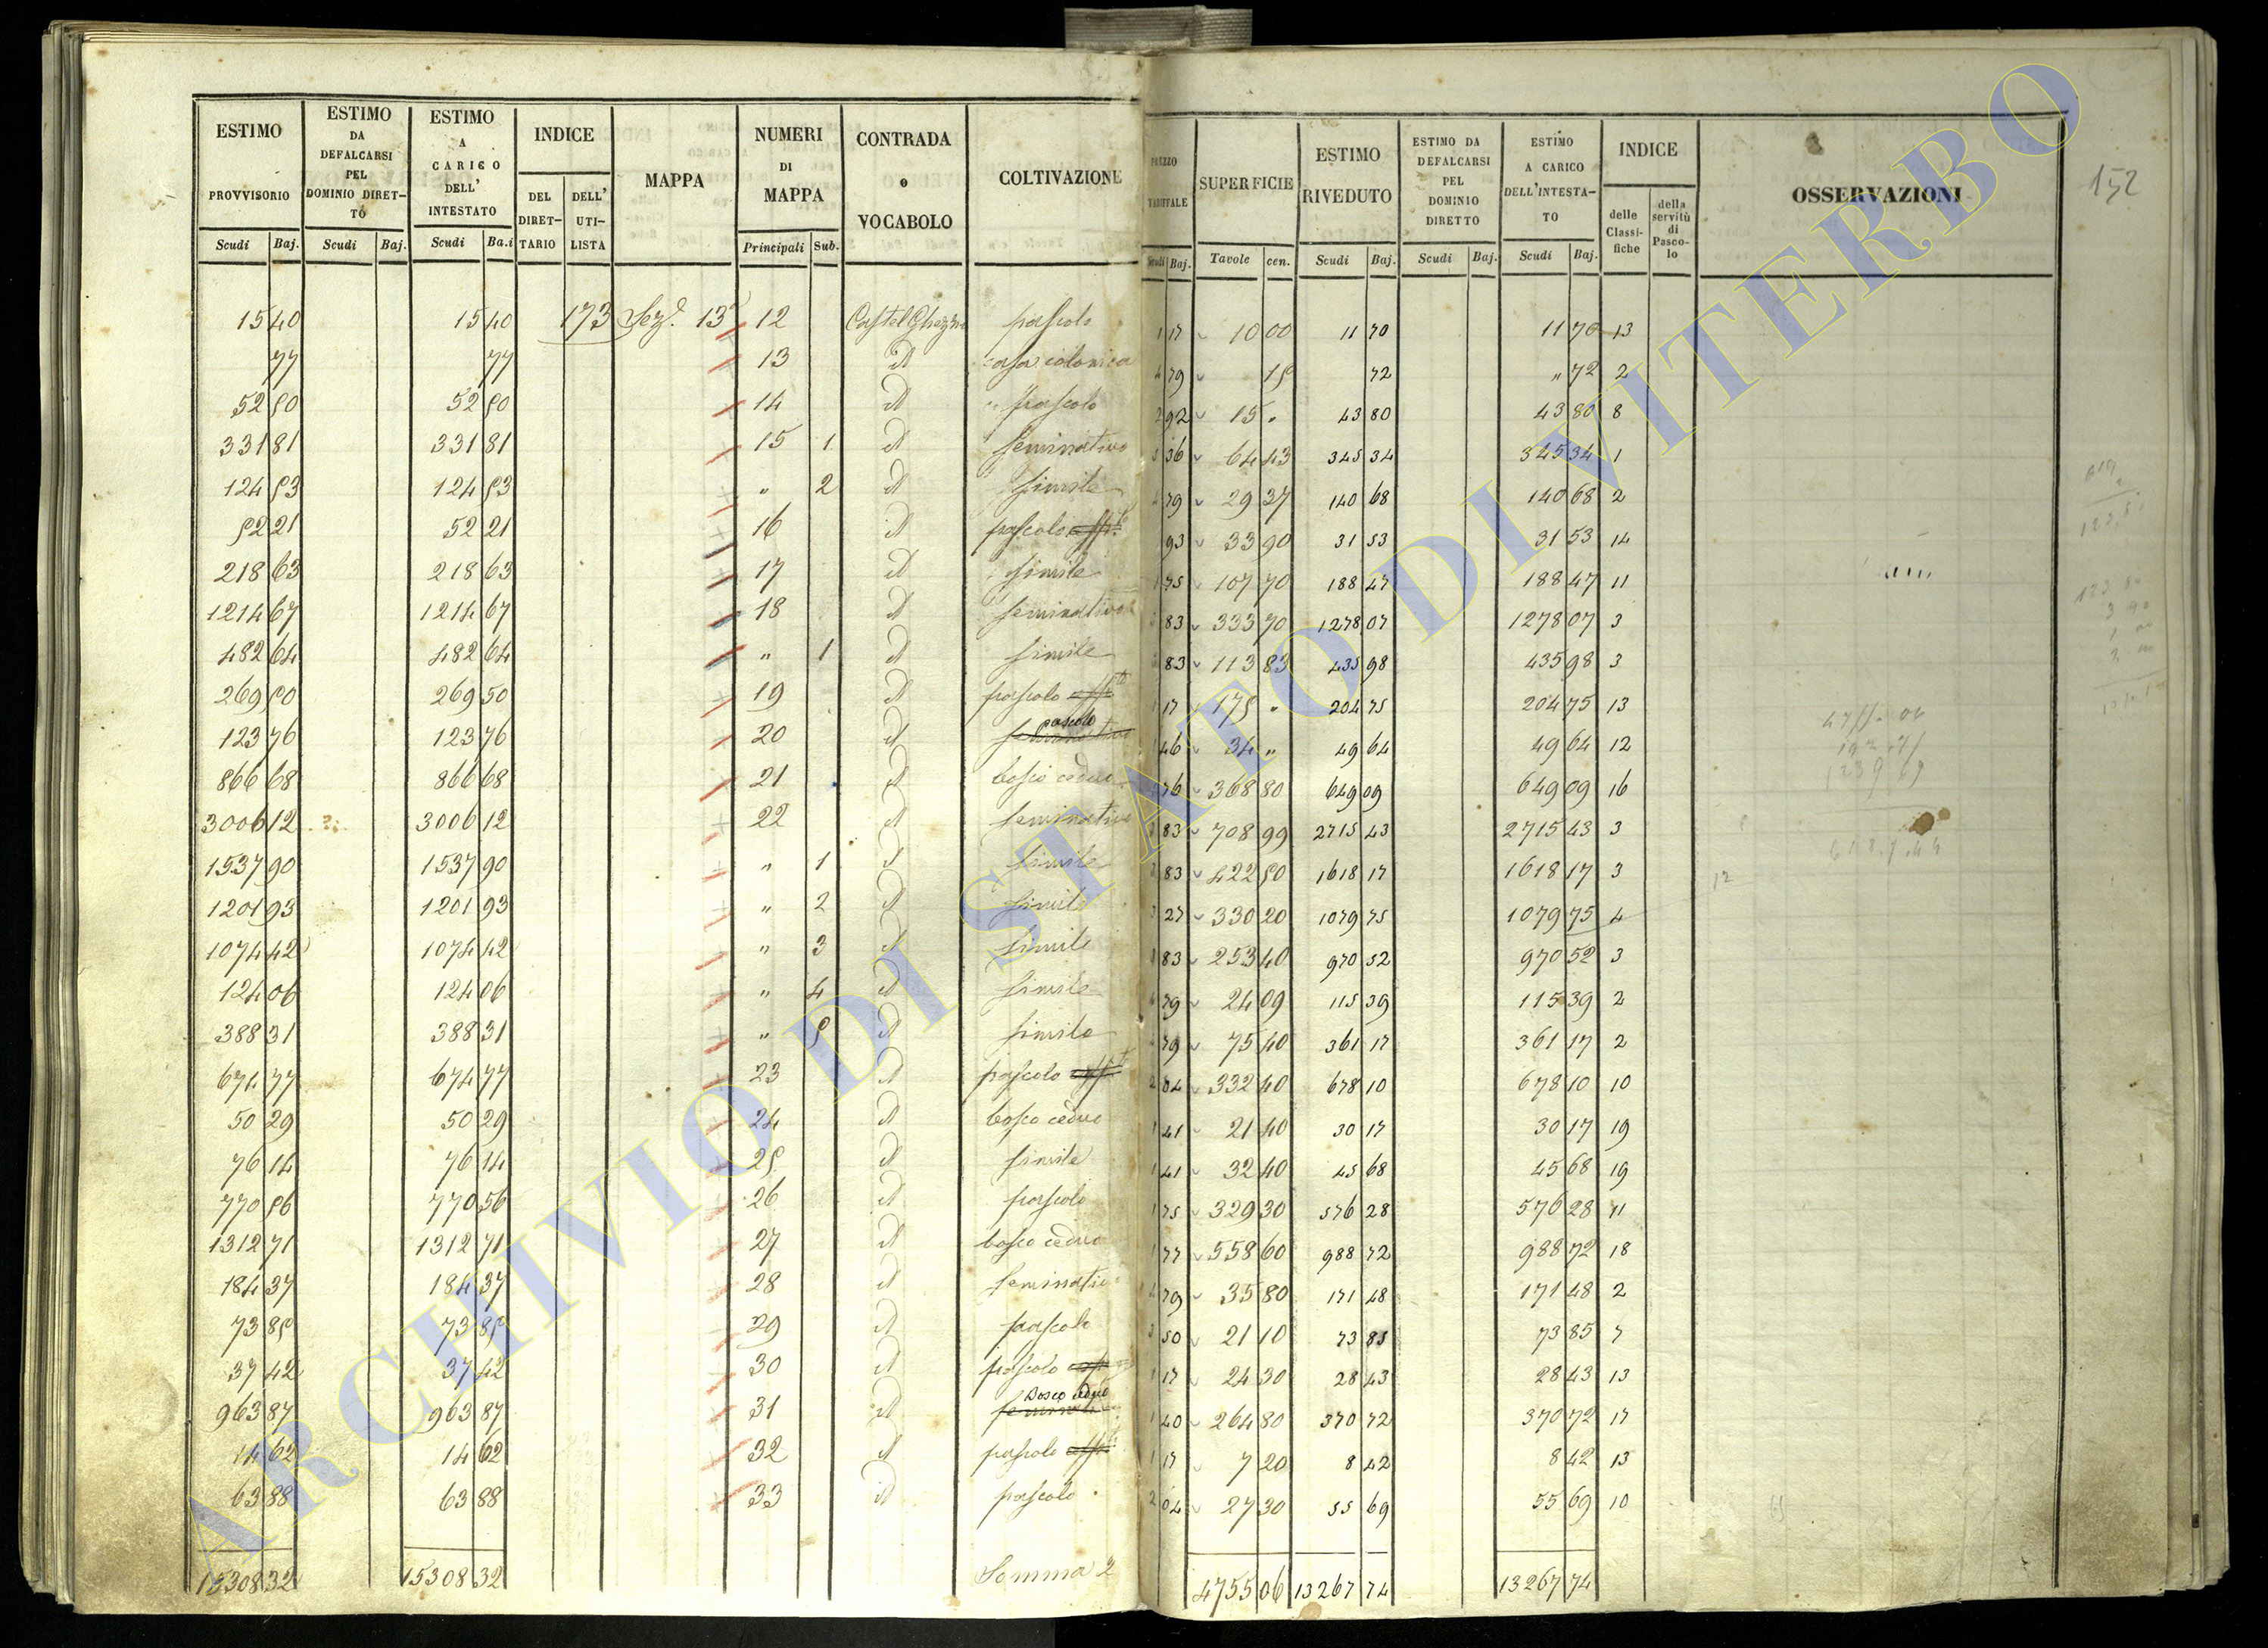 ESTIMO PROVVISORIO Scudi Baj. | ESTIMO DA DEFALCARSI PEL DOMINIO DIRETTO Scudi Baj. | ESTIMO A CARICO DELL' INTESTATO Scudi Ba.i | INDICE DEL DIRETTARIO DELL' UTILISTA | MAPPA | NUMERI DI MAPPA Principali Sub. | CONTRADA o VOCABOLO | COLTIVAZIONE | PREZZO TARIFFALE Scudi Baj. | SUPERFICIE Tavole cen. | ESTIMO RIVEDUTO Scudi Baj. | ESTIMO DA DEFALCARSI PEL DOMINIO DIRETTO Scudi Baj. | ESTIMO A CARICO DELL'INTESTATO Scudi Baj. | INDICE delle Classifiche della servitù di Pascolo | OSSERVAZIONI
152
15 40 15 40 173 Sez.e 13a 12 pascolo 1 17 10 00 11 70 11 70 13
77 77 13 id casa colonica 4 79 15 72 " 72 2
52 50 52 50 14 id " pascolo 2 92 15 " 43 80 43 80 8
331 81 331 81 15 1 id seminativo 5 36 64 43 345 34 345 34 1
124 53 124 53 " 2 id simile 4 79 29 37 140 68 140 68 2
52 21 52 21 16 id pascolo 93 33 90 31 53 31 53 14
218 63 218 63 17 id simile 1 75 107 70 188 47 188 47 11
1214 67 1214 67 18 id seminativo 3 83 333 70 1278 07 1278 07 3
482 64 482 64 " 1 id simile 3 83 113 83 435 98 435 98 3
269 50 269 50 19 id pascolo 1 17 175 " 204 75 204 75 13
123 76 123 76 20 id pascolo 1 46 34 " 49 64 49 64 12
866 68 866 68 21 id bosco ceduo 1 76 368 80 649 09 649 09 16
3006 12 3006 12 22 id seminativo 3 83 708 99 2715 43 2715 43 3
1537 90 1537 90 " 1 id simile 3 83 422 50 1618 17 1618 17 3
1201 93 1201 93 " 2 id simile 3 27 330 20 1079 75 1079 75 4
1074 42 1074 42 " 3 id simile 3 83 253 40 970 52 970 52 3
124 06 124 06 " 4 id simile 4 79 24 09 115 39 115 39 2
388 31 388 31 " 5 id simile 4 79 75 40 361 17 361 17 2
674 77 674 77 23 id pascolo 2 04 332 40 678 10 678 10 10
50 29 50 29 24 id bosco ceduo 1 41 21 40 30 17 30 17 19
76 14 76 14 25 id simile 1 41 32 40 45 68 45 68 19
770 56 770 56 26 id pascolo 1 75 329 30 576 28 576 28 11
1312 71 1312 71 27 id bosco ceduo 1 77 558 60 988 72 988 72 18
184 37 184 37 28 id seminativo 4 79 35 80 171 48 171 48 2
73 85 73 85 29 id pascolo 3 50 21 10 73 85 73 85 7
37 42 37 42 30 id pascolo 1 17 24 30 28 43 28 43 13
963 87 963 87 31 id Bosco ceduo 1 40 264 80 370 72 370 72 17
14 62 14 62 32 id pascolo 1 17 7 20 8 42 8 42 13
63 88 63 88 33 id pascolo 2 04 27 30 55 69 55 69 10
15308 32 15308 32 Somma 2 4755 06 13267 74 13267 74
ARCHIVIO DI STATO DI VITERBO